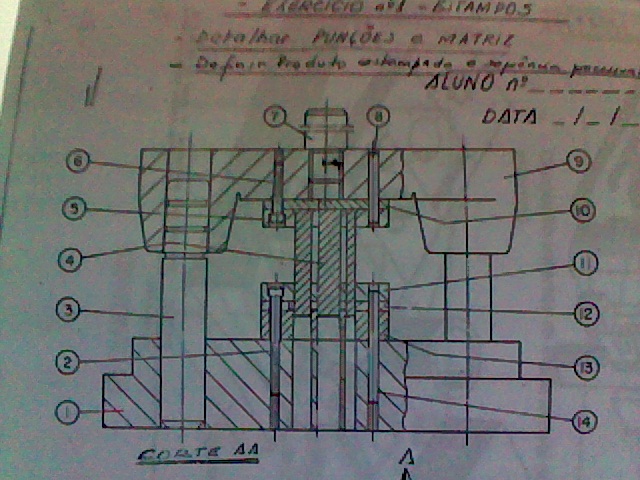 - EXERCÍCIO nº1 - ESTAMPOS
- Detalhar PUNÇÕES e MATRIZ
- Definir Produto estampado e
ALUNO nº
DATA _/_/_
7
8
6
9
5
10
4
11
3
12
2
13
1
14
CORTE AA
A